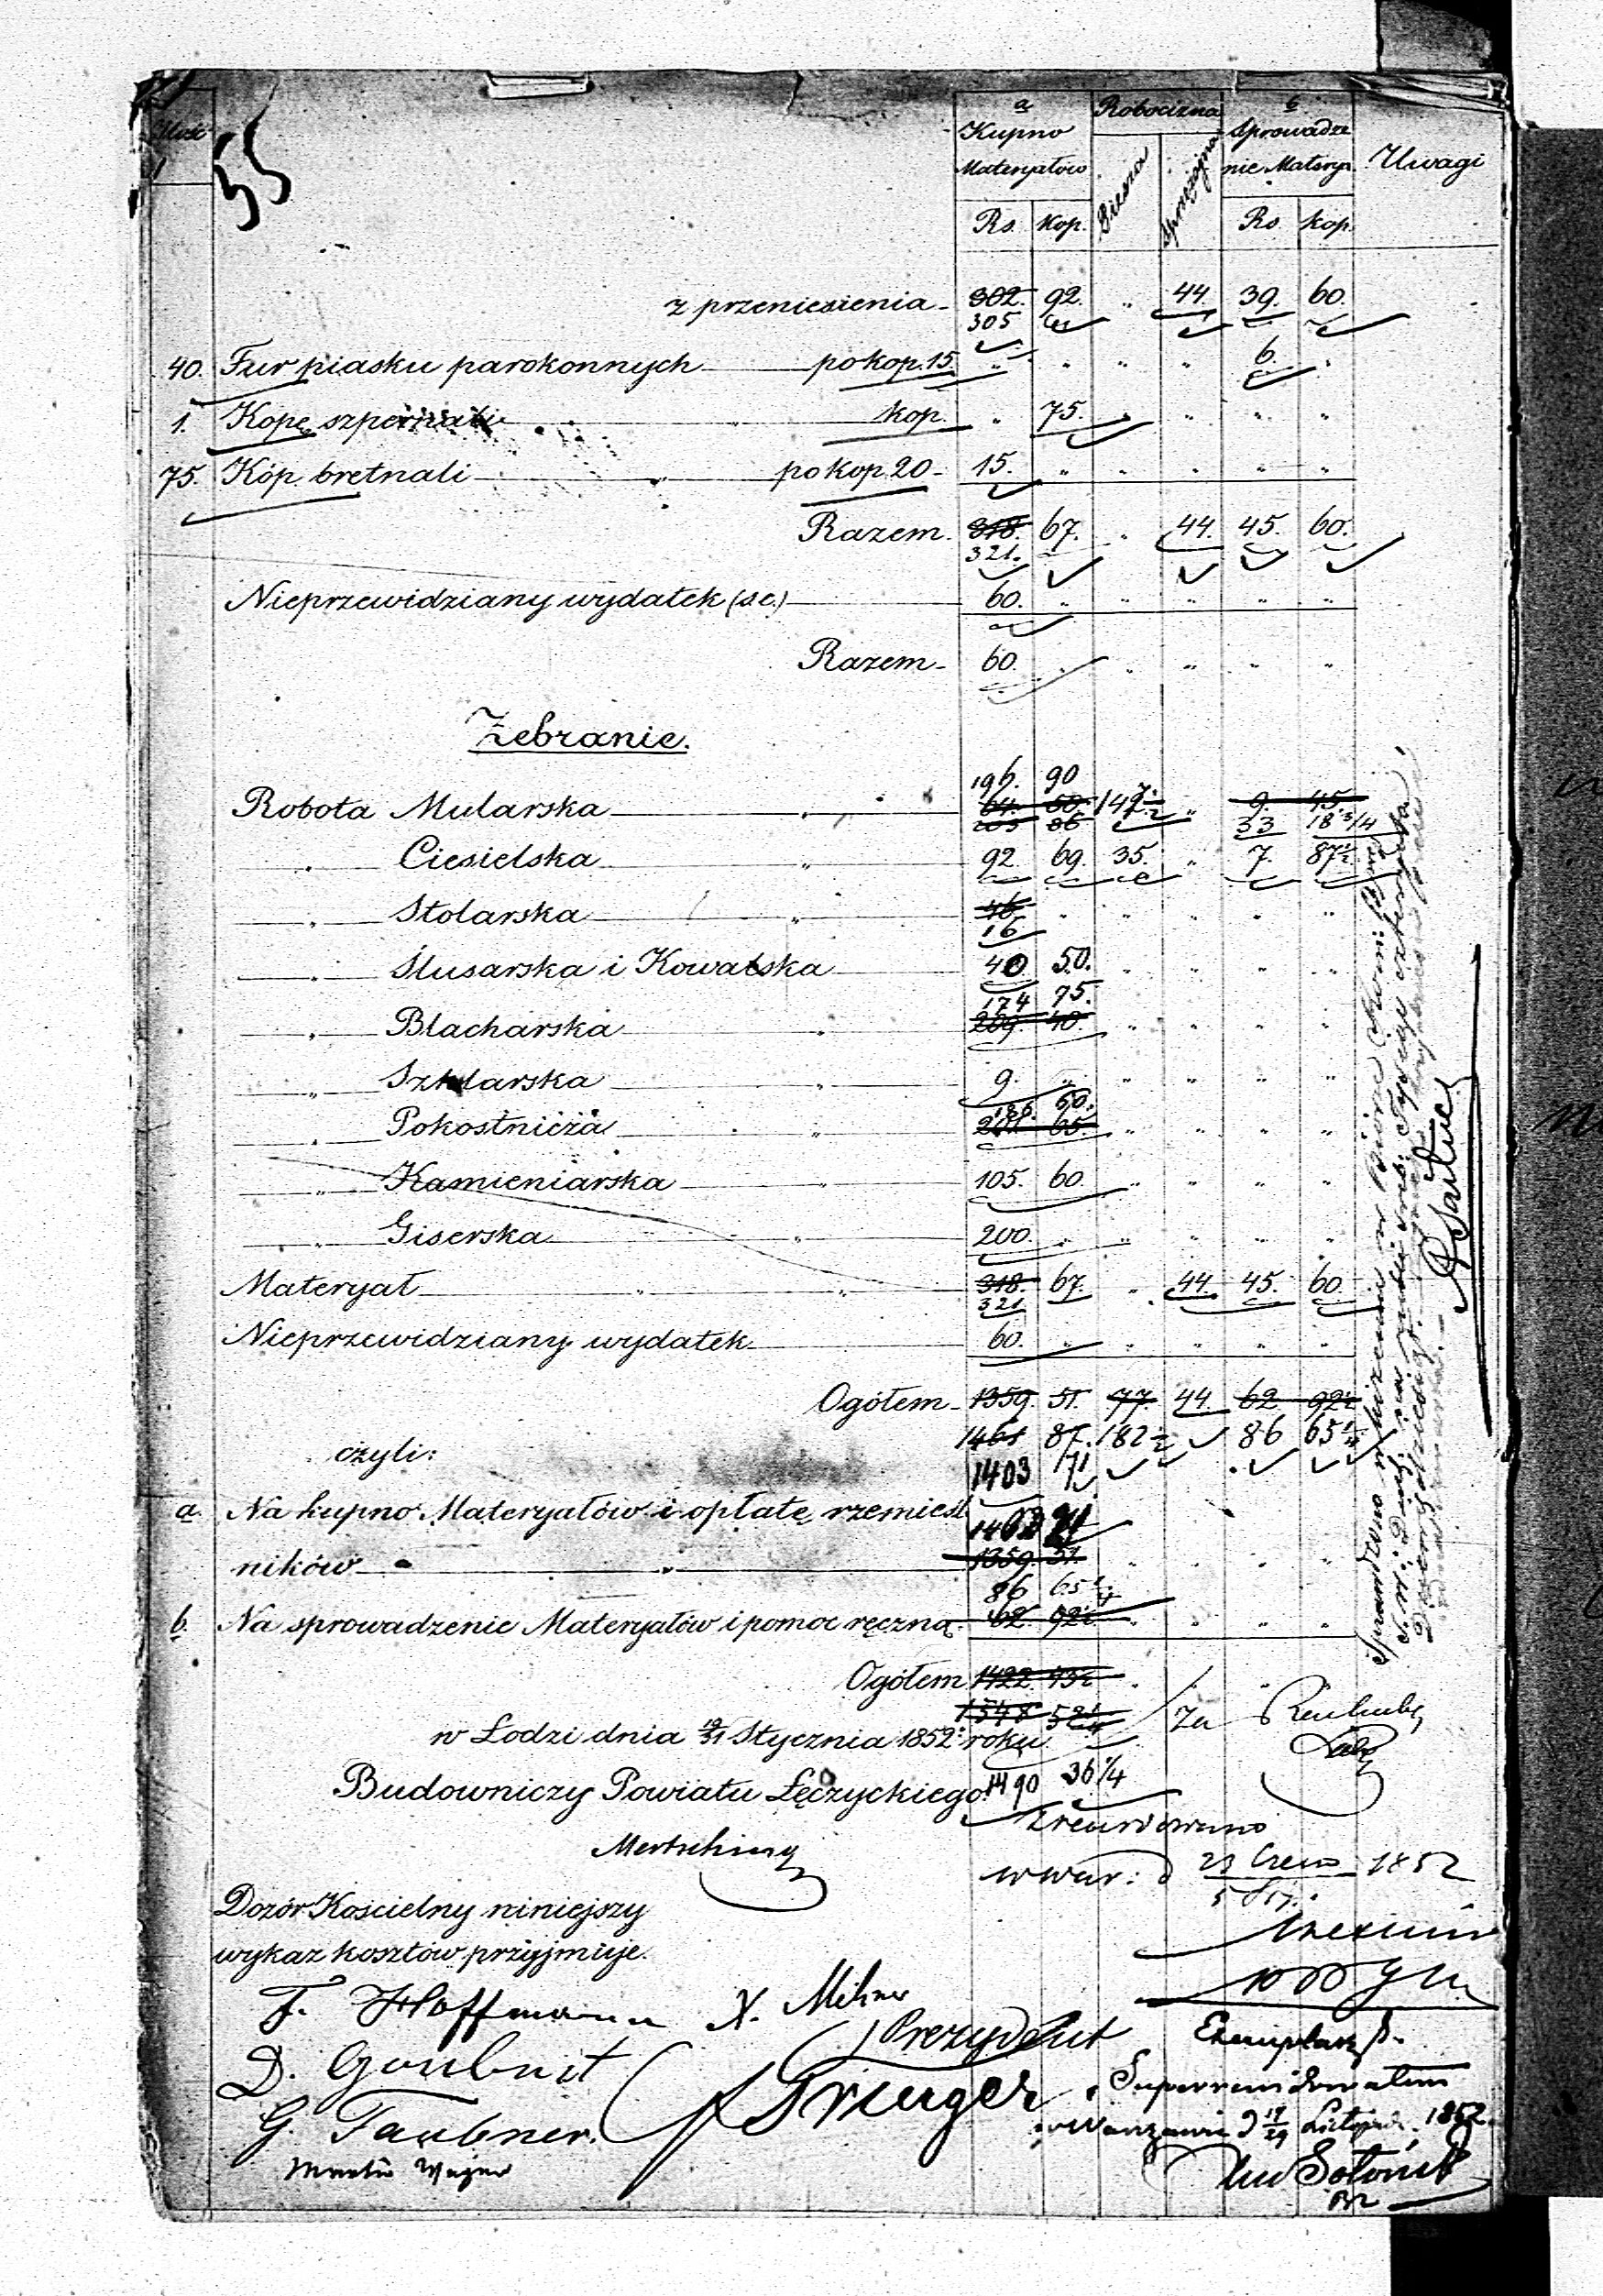 Ilość
55
a
Kupno
Materyałów
Rs. kop.
Robocizna
Piesza
Sprzężajna
b
Sprowadze
nie Materyał.
Rs kop.
Uwagi
z przeniesienia 302. 92. " 44. 39. 60.
305
40. Fur piasku parokonnych po kop. 15. " " " " 6. "
1. Kopę szpernali " kop. " 75. " " " "
75. Kóp bretnali " po kop 20 15. " " " " "
Razem 318. 67. " 44. 45. 60.
321.
Nieprzewidziany wydatek (s.e.) 60. " " " " "
Razem 60. " " " " "
Zebranie.
196. 90
Robota Mularska " 64. 50. 147½ " 9. 45.
205 86 33 18 3/4
" Ciesielska " 92 69. 35. " 7. 87½
" Stolarska " 46. " " " " "
16
" Slusarska i Kowalska 40 50. " " " "
174 75.
" Blacharska " 209. 40. " " " "
" Szklarska " 9. " " " " "
186. 60.
" Pokostnicza " 201 65. " " " "
" Kamieniarska " 105. 60. " " " "
" Giserska " 200. " " " " "
Materyał " " 318. 67. " 44. 45. 60.
321
Nieprzewidziany wydatek 60. " " " " "
Ogółem 1359. 51. 77. 44. 62 92½
1461 87. 182½ 86 65¼
czyli: 1403 71
a. Na kupno Materyałów i opłatę rzemieśl
1403 71
ników " 1359. 51. " " " "
86 65¼
b. Na sprowadzenie Materyałów i pomoc ręczną 62. 92½ " " " "
Ogółem 1422 43½ " " "
1548 52¼ Za
w Łodzi dnia 19/31 Stycznia 1852 roku
Budowniczy Powiatu Łęczyckiego 1490 36¼
Zrewidowano
Mertsching
w War: d 23 Czerw 1852
5 Lip.
Dozór Kościelny niniejszy
wykaz kosztów przyjmuje.
F. Hoffmann X. Milner
Prezydent
D. Gaubnit
Traeger
G. Taubner.
Martin Wagner
Superrewidowałem
w Warszawie d 17/29 Listopada 1852